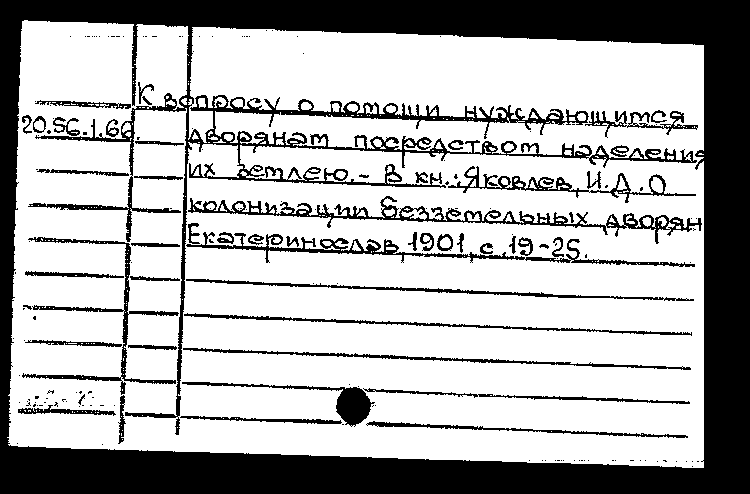 К вопросу о помощи нуждающимся
20.56.1.66. дворянам посредством наделения
их землею.- В кн.: Яковлев, И.Д. О
колонизации безземельных дворян
Екатеринослав, 1901, с. 19-25.